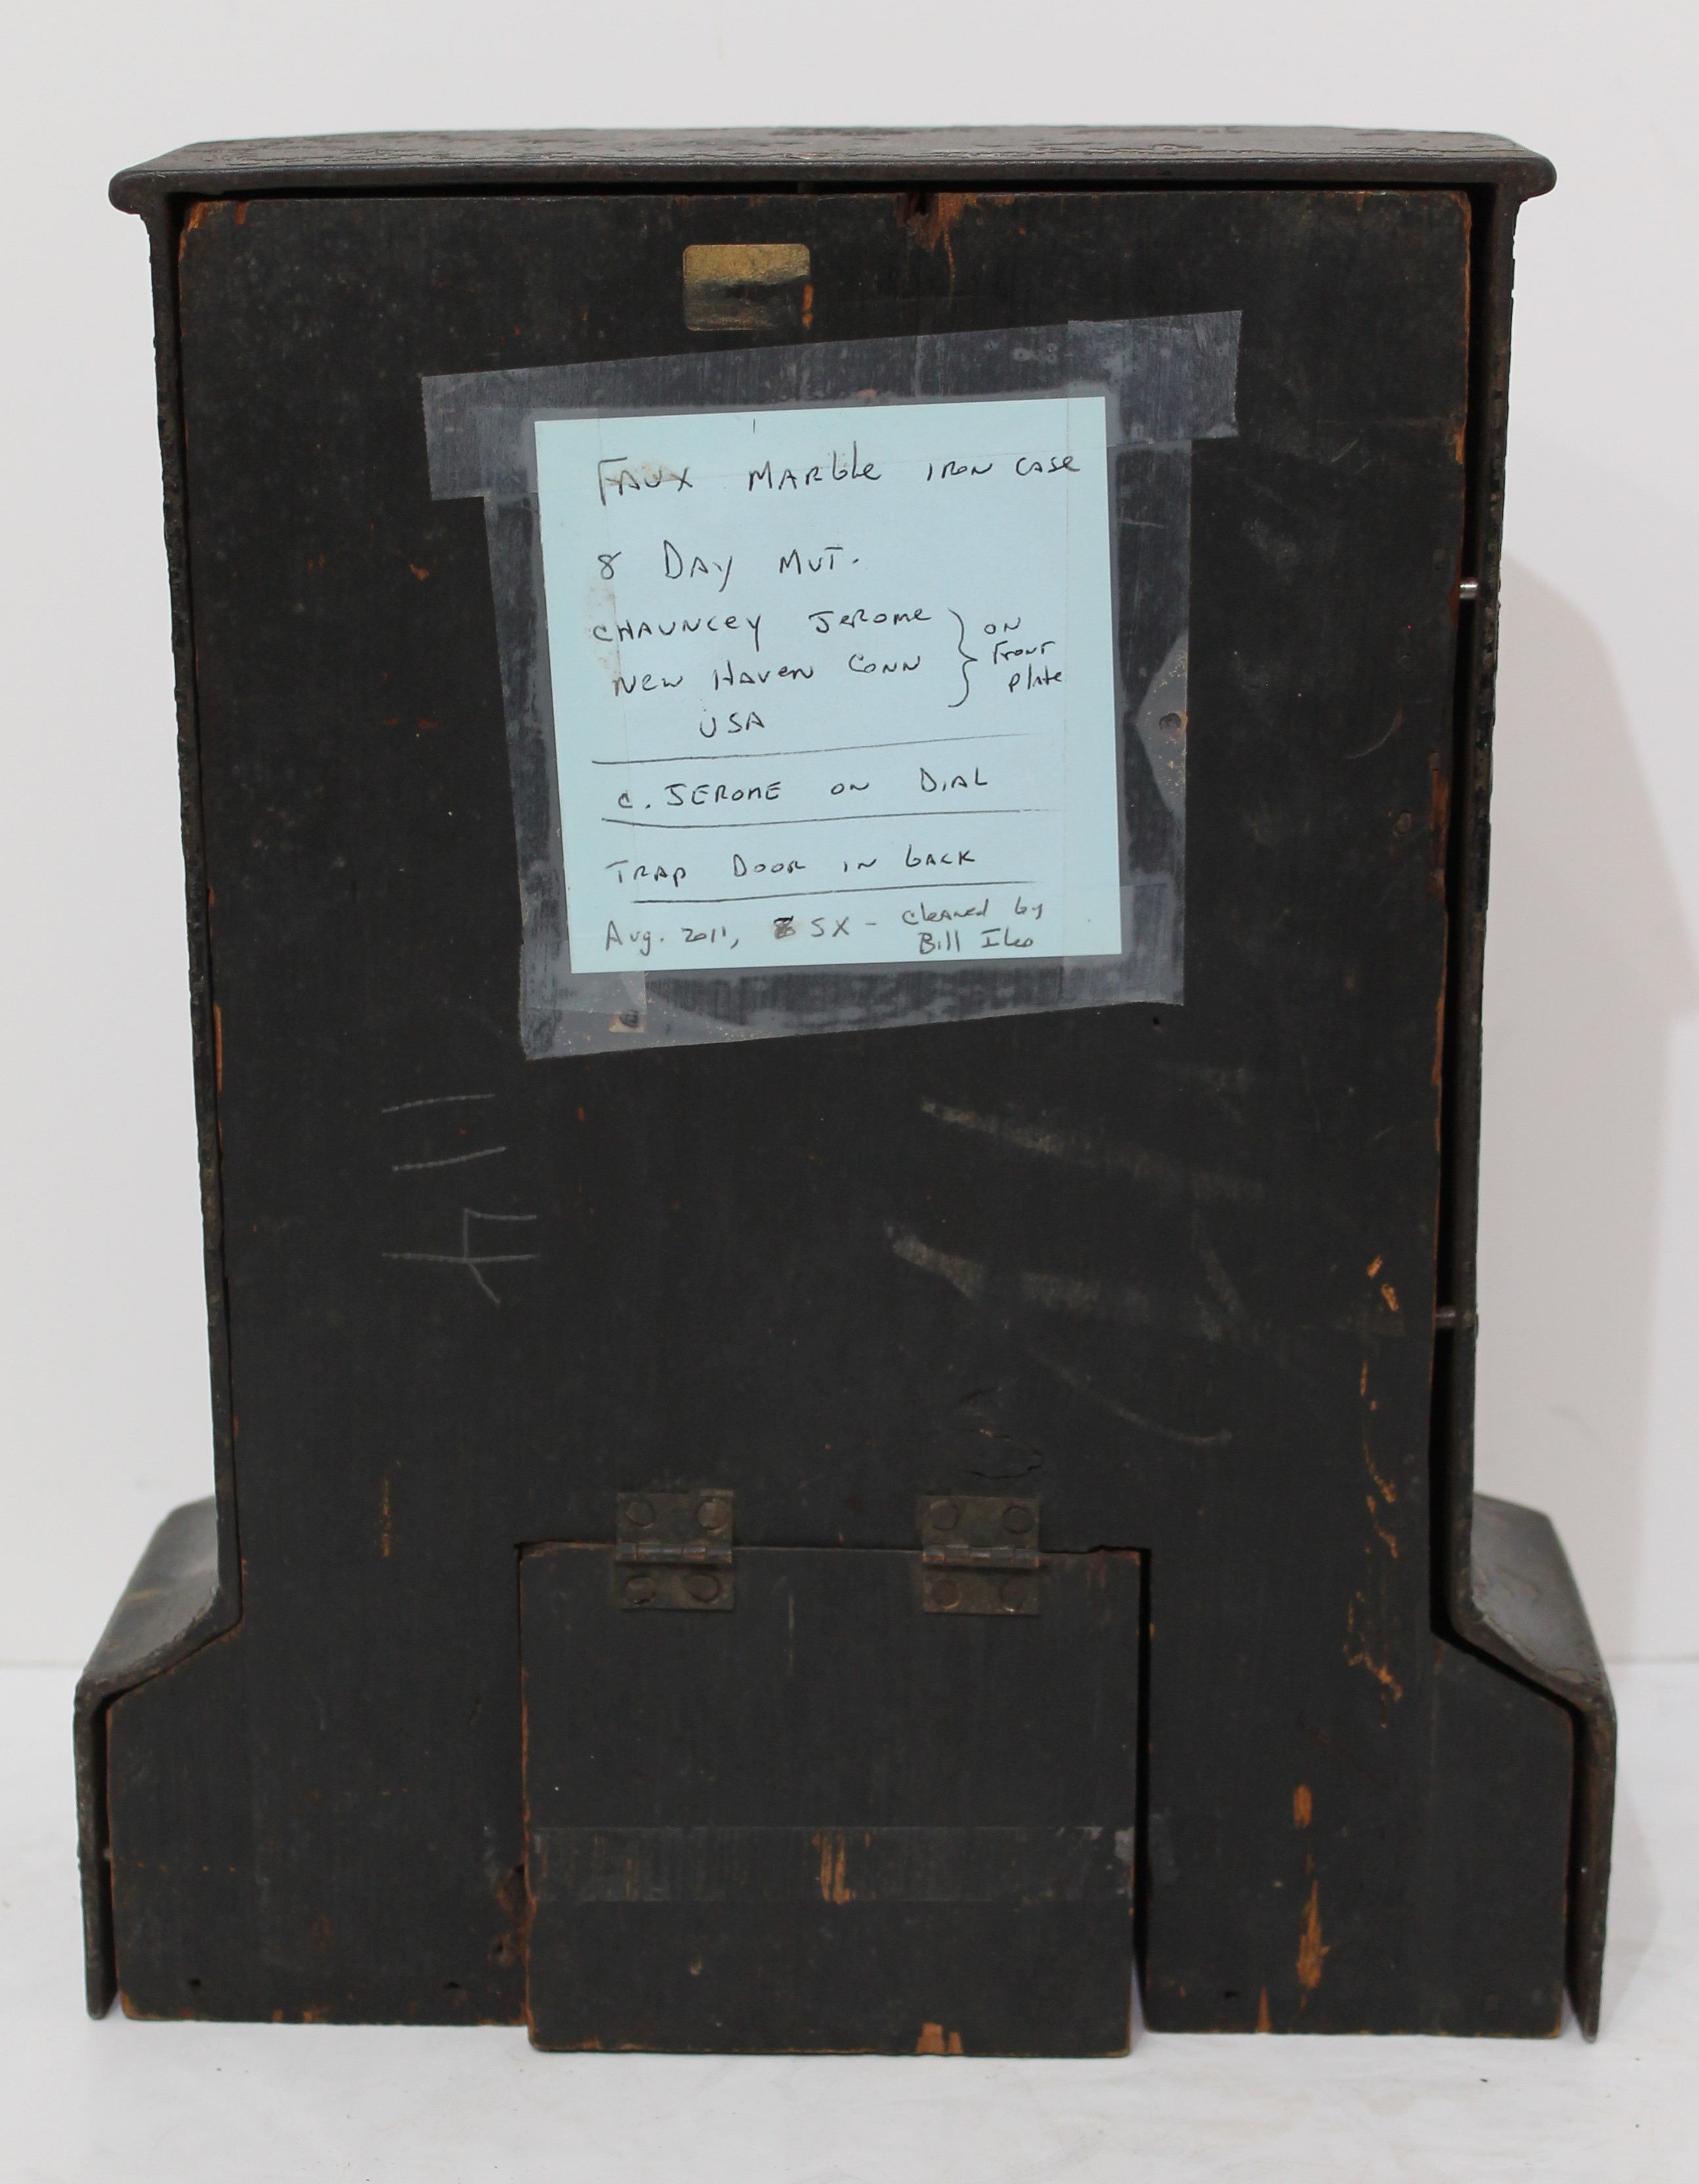 FAUX MARble IRON CASe
8 DAY MVT.
CHAUNCEY JEROME } ON
NEW HAVEN CONN FRONT
USA plate
C. JEROME ON DIAL
TRAP DOOR IN bACK
Aug. 2011, 5X - Cleaned by
Bill
114